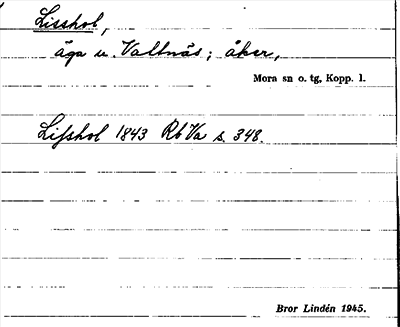 Lisshol,
äga u. Vallnäs; åker,
Mora sn o. tg, Kopp. l.
Lifshol 1843 Rb Va s. 348.
Bror Lindén 1945.